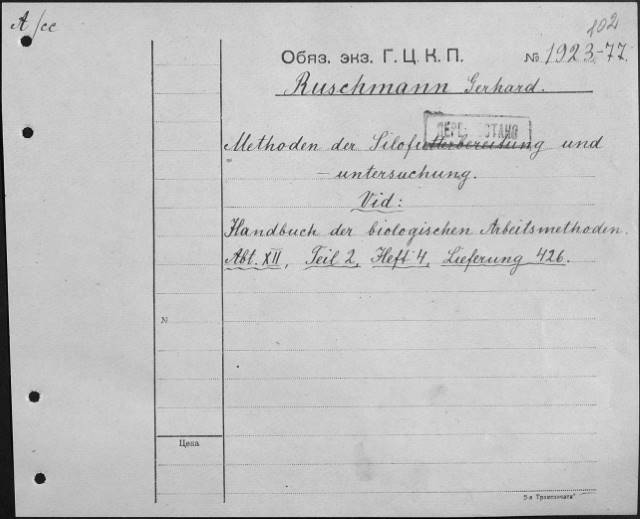 A/сс
102
Обяз. экз. Г. Ц. К. П. № 1923-77.
Ruschmann Gerhard.
Methoden der Silofutterbereitung und
- untersuchung.
Vid:
Handbuch der biologischen Arbeitsmethoden.
Abt. XII, Teil 2, Heft 4, Lieferung 426.
N
Цена